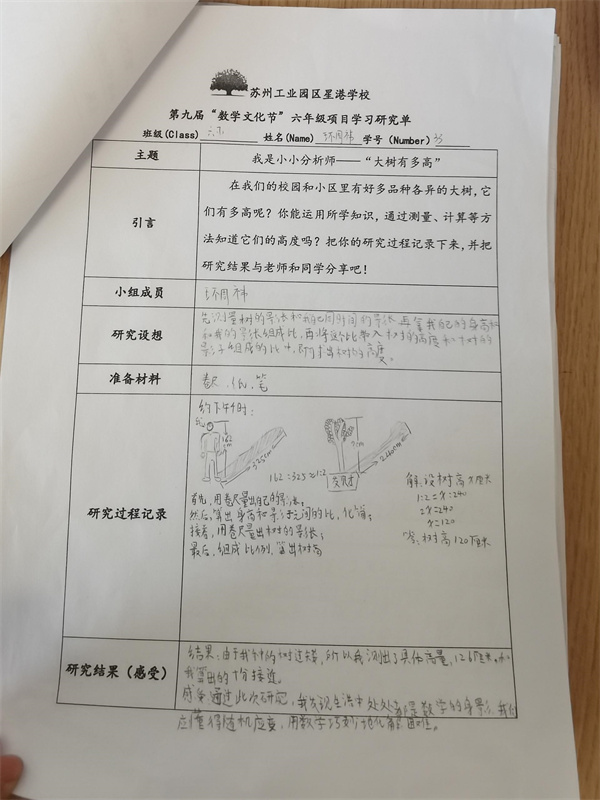 苏州工业园区星港学校
第九届“数学文化节”六年级项目学习研究单
班级(Class) 姓名(Name) 学号 (Number)
主题
我是小小分析师——“大树有多高”
引言
在我们的校园和小区里有好多品种各异的大树,它
们有多高呢?你能运用所学知识,通过测量、计算等方
法知道它们的高度吗?把你的研究过程记录下来,并把
研究结果与老师和同学分享吧!
小组成员
研究设想
先测量树的影长和我的同时间的影长,再拿我自己的身高
和我的影长组成比,再将这个比带入大树的高度和大树的
影子组成的比中,即可求出树的高度。
准备材料
卷尺、纸、笔
研究过程记录
约下午4时:
我
162cm
325cm
162:325≈1:2
?cm
240cm
首先,用卷尺量出自己的影长;
然后,算出身高和影长之间的比,化简;
接着,用卷尺量出树的影长;
最后,组成比例,算出树高
解:设树高x厘米
1:2=x:240
2x=240
x=120
答:树高120厘米
研究结果(感受)
结果:由于我种的树过矮,所以我测出了具体高量,126厘米,和
我算出的十分接近。
感受:通过此次研究,我发现生活中处处都是数学的身影,我们
应懂得随机应变,用数学巧妙地化解困难。